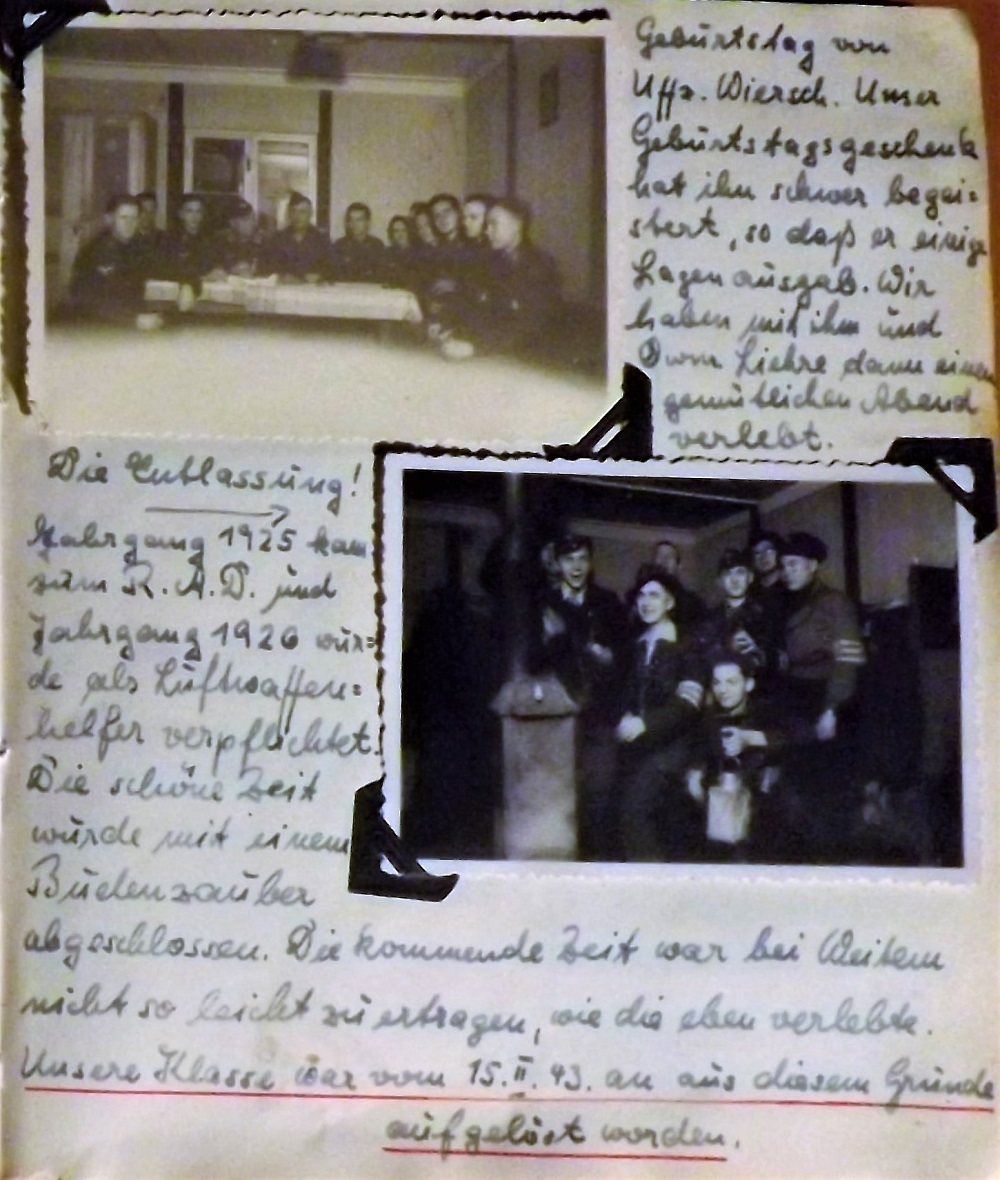 Geburtstag von
Uffz. Wiersch. Unser
Geburtstagsgeschenk
hat ihn schwer begei=
stert, so daß er einige
Lagen ausgab. Wir
haben mit ihm und
Liehre dann einen
gemütlichen Abend
verlebt.
Die Entlassung!
Jahrgang 1925 kam
zum R.A.D. und
Jahrgang 1926 wur=
de als Luftwaffen=
helfer verpflichtet.
Die schöne Zeit
wurde mit einem
Budenzauber
abgeschlossen. Die kommende Zeit war bei Weitem
nicht so leicht zu ertragen, wie die eben verlebte.
Unsere Klasse war vom 15.II.43. an aus diesem Grunde
aufgelöst worden.